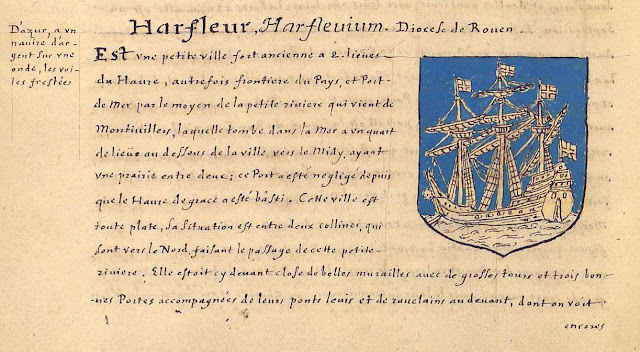 Harfleur, Harflevium. Diocese de Rouen.
D'azur, a vn
nauire d'ar-
gent sur vne
onde, les voi-
les freslées
Est vne petite ville fort ancienne a 2. lieües
du Haure, autrefois frontiere du Pays, et Port
de Mer par le moyen de la petite riuiere qui vient de
Montiuillers, laquelle tombe dans la Mer a vn quart
de lieüe au dessous de la ville, vers le Midy, ayant
vne prairie entre deux; ce Port a esté negligé depuis
que le Haure de grace a esté basti. Cette ville est
toute plate, sa situation est entre deux collines, qui
sont vers le Nord, faisant le passage de cette petite
riuiere. Elle estoit cy deuant close de belles murailles auec de grosses tours et trois bon-
nes Portes accompagnées de leurs ponts leuis et de rauelains au deuant, dont on voit
encores